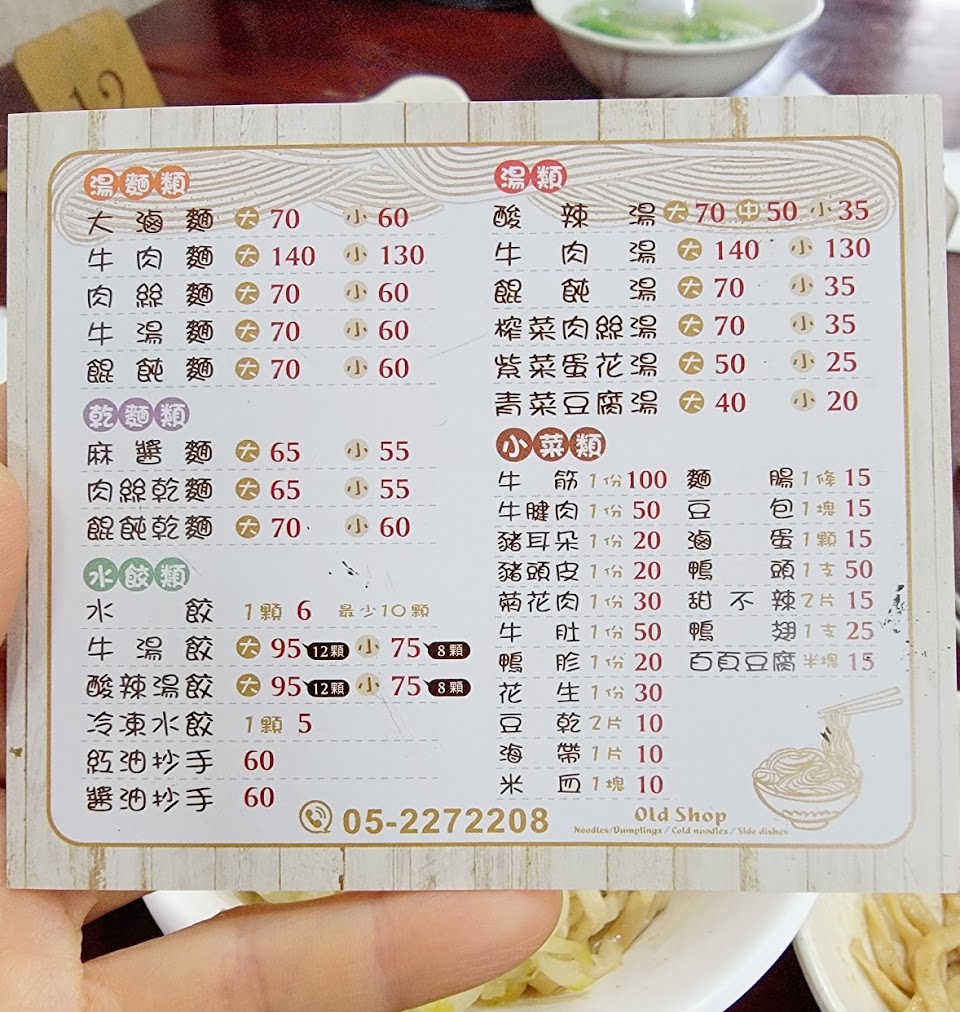 12
湯麵類
大滷麵 大 70 小 60
牛肉麵 大 140 小 130
肉絲麵 大 70 小 60
牛湯麵 大 70 小 60
餛飩麵 大 70 小 60
乾麵類
麻醬麵 大 65 小 55
肉絲乾麵 大 65 小 55
餛飩乾麵 大 70 小 60
水餃類
水餃 1顆 6 最少10顆
牛湯餃 大 95 12顆 小 75 8顆
酸辣湯餃 大 95 12顆 小 75 8顆
冷凍水餃 1顆 5
紅油抄手 60
醬油抄手 60
湯類
酸辣湯 大 70 中 50 小 35
牛肉湯 大 140 小 130
餛飩湯 大 70 小 35
榨菜肉絲湯 大 70 小 35
紫菜蛋花湯 大 50 小 25
青菜豆腐湯 大 40 小 20
小菜類
牛筋 1份 100 麵腸 1條 15
牛腱肉 1份 50 豆包 1塊 15
豬耳朵 1份 20 滷蛋 1顆 15
豬頭皮 1份 20 鴨頭 1支 50
菊花肉 1份 30 甜不辣 2片 15
牛肚 1份 50 鴨翅 1支 25
鴨胗 1份 20 百頁豆腐 半塊 15
花生 1份 30
豆乾 2片 10
海帶 1片 10
米血 1塊 10
05-2272208
Old Shop
Noodles/Dumplings / Cold noodles / Side dishes